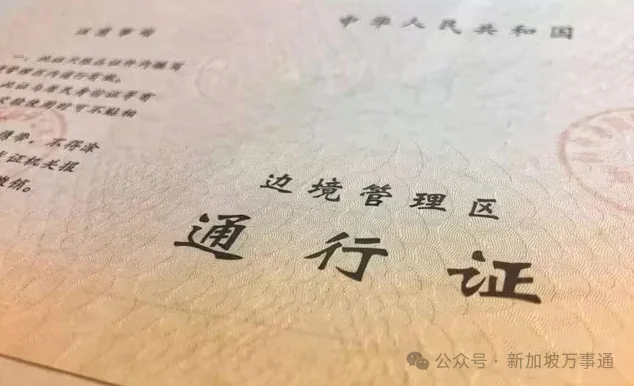 注意事项
一、此证只限在证件内填写
管理区内通行有效。
此证与居民身份证等有
效使用时可不贴相
携带，不得涂
证机关报
撤销。
中华人民共和国
边境管理区
通行证
公众号·新加坡万事通